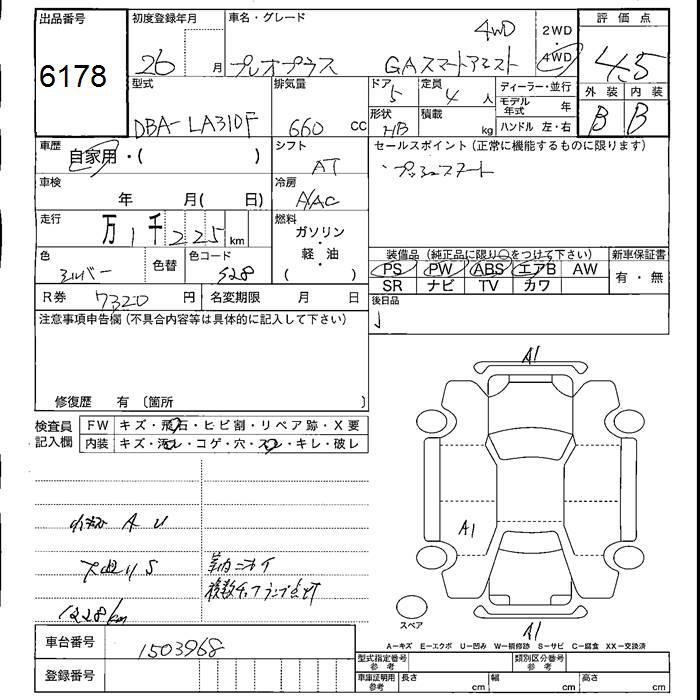 出品番号
6178
初度登録年月
26 月
車名・グレード
4WD
プレオプラス GAスマートアシスト
2WD
・
4WD
評価点
4.5
外装 内装
B B
型式
DBA-LA310F
排気量
660 cc
ドア
5
定員
4 人
形状
HB
積載
kg
ディーラー・並行
モデル年式 年
ハンドル 左・右
車歴
自家用・( )
シフト
AT
セールスポイント(正常に機能するものに限ります)
・プッシュスタート
車検
年 月( 日)
冷房
AAC
走行
万 1 千 225 km
燃料
ガソリン
・
軽・油
( )
色
シルバー
色替
色コード
S28
装備品(純正品に限り○をつけて下さい)
PS PW ABS エアB AW
SR ナビ TV カワ
新車保証書
有・無
R券 7320 円
名変期限 月 日
後日品
注意事項申告欄(不具合内容等は具体的に記入して下さい)
修復歴 有 〔箇所 〕
検査員記入欄
FW キズ・飛石・ヒビ割・リペア跡・X要
内装 キズ・汚レ・コゲ・穴・スレ・キレ・破レ
A1
A1
A1
小キズ A U
下廻りS
1228km
車内ニオイ
複数チェックランプ点灯
スペア
A-キズ E-エクボ U-凹み W-補修跡 S-サビ C-腐食 XX-交換済
車台番号 1503968
登録番号
型式指定番号 参考
類別区分番号 参考
車庫証明用 参考
長さ cm
幅 cm
高さ cm